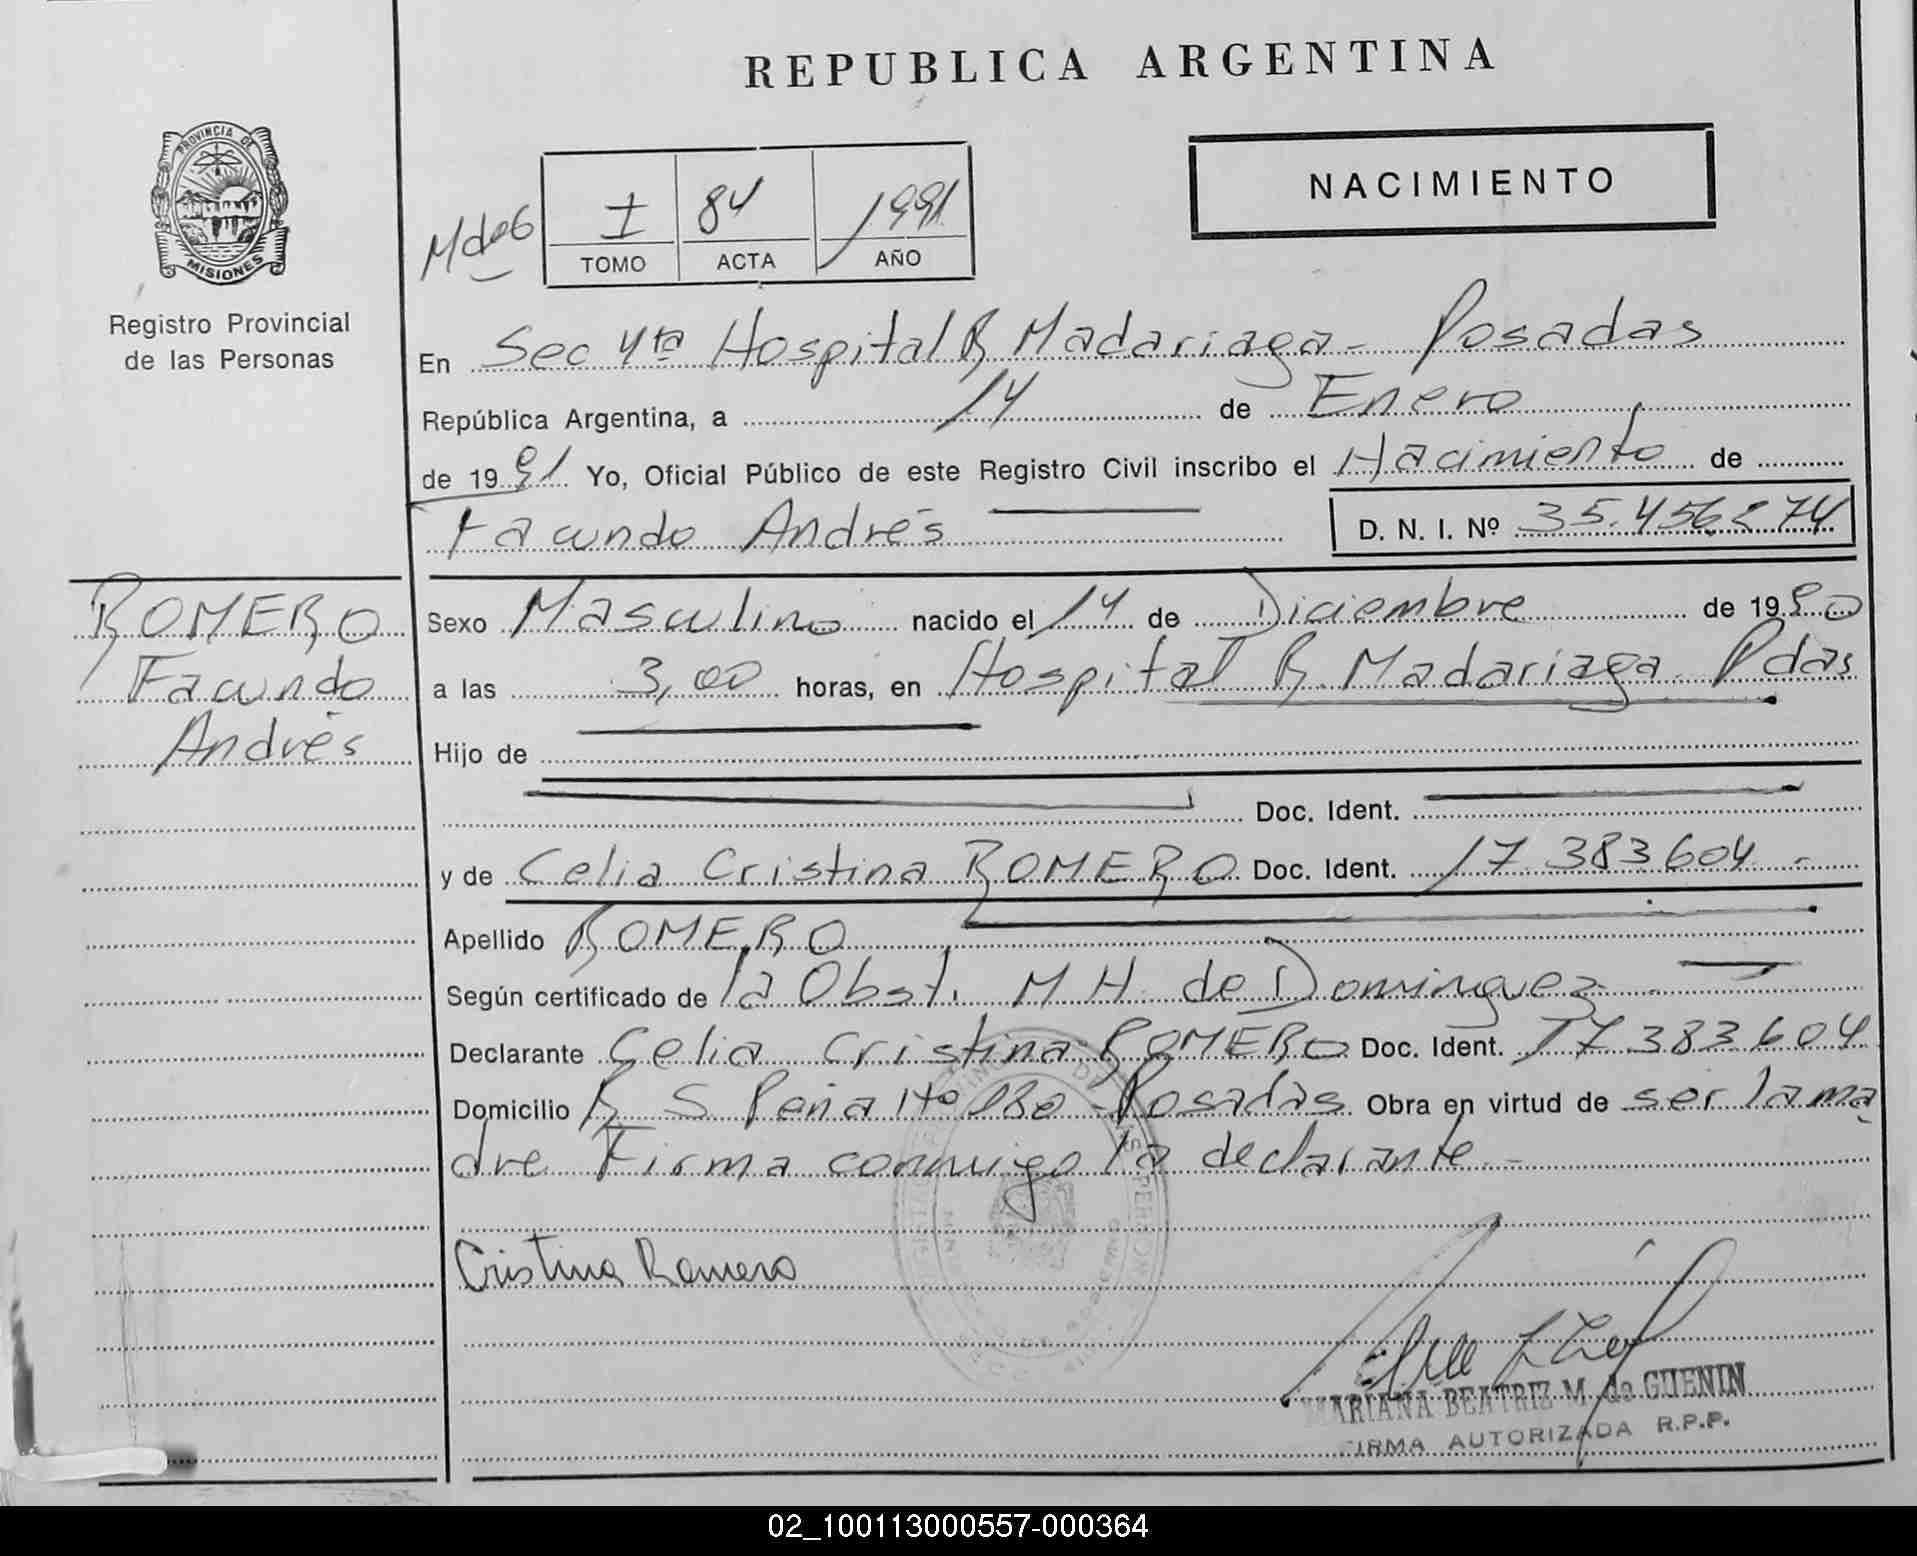 REPUBLICA ARGENTINA
PROVINCIA DE
MISIONES
NACIMIENTO
I 84 1991
TOMO ACTA AÑO
Registro Provincial
de las Personas
En Sec 4ta Hospital R Madariaga - Posadas
República Argentina, a 14 de Enero
de 1991 Yo, Oficial Público de este Registro Civil inscribo el Nacimiento de
Facundo Andrés D. N. I. Nº
ROMERO
Facundo
Andrés
Sexo Masculino nacido el 14 de Diciembre de 1990
a las 3,00 horas, en Hospital R. Madariaga - Pdas
Hijo de
Doc. Ident.
y de Celia Cristina ROMERO Doc. Ident. 17 383 604 -
Apellido ROMERO
Según certificado de la Obst. M H de Dominguez
Declarante Celia Cristina ROMERO Doc. Ident. 17 383 604
Domicilio R S Peña - Posadas Obra en virtud de ser la ma
dre Firma conmigo la declarante -
Cristina Romero
MARIANA BEATRIZ M. de GUENIN
FIRMA AUTORIZADA R.P.P.
02_100113000557-000364